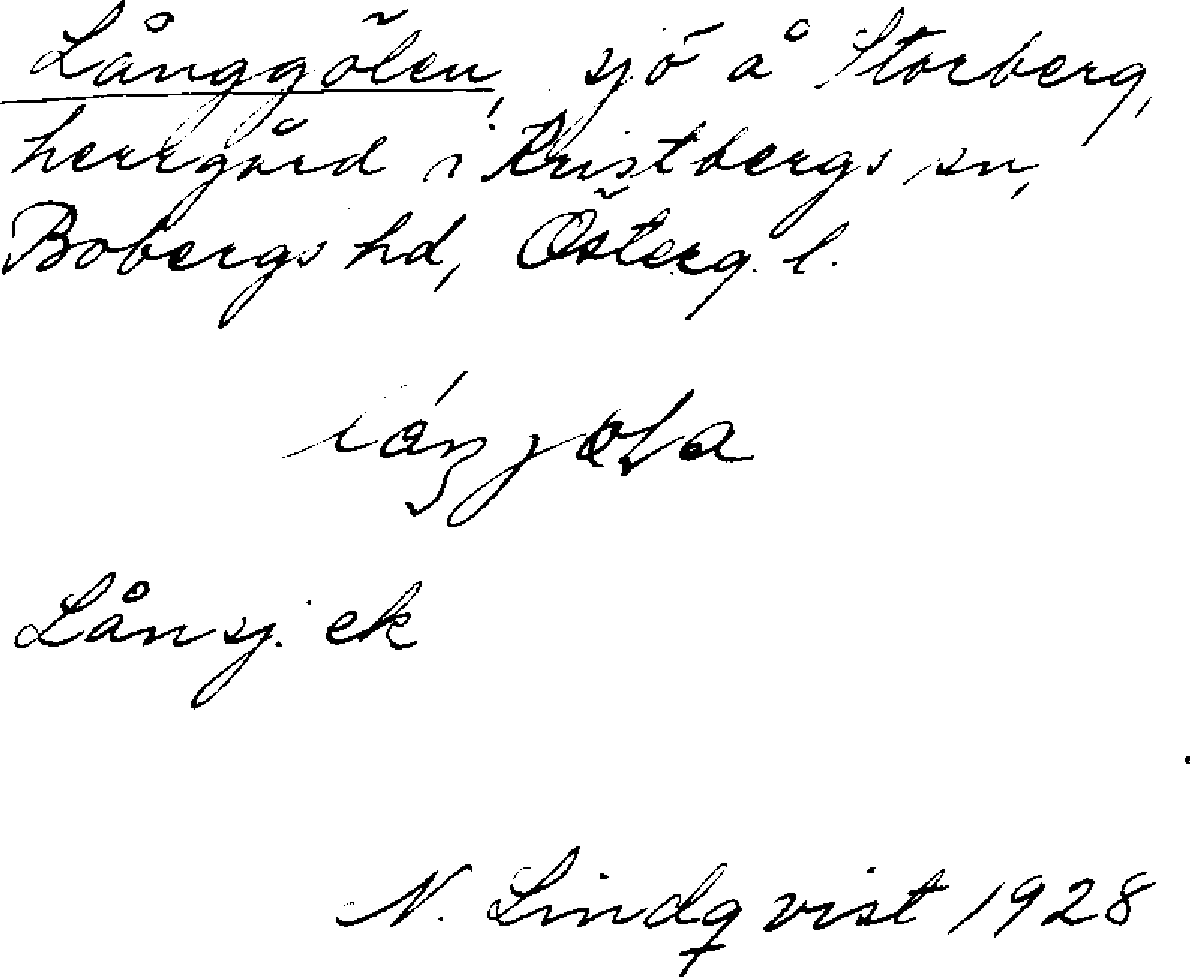 Långgölen, sjö å Storberg,
herrgård i Kristbergs sn,
Bobergs hd, Österg. l.
Långsj. ek
N. Lindqvist 1928